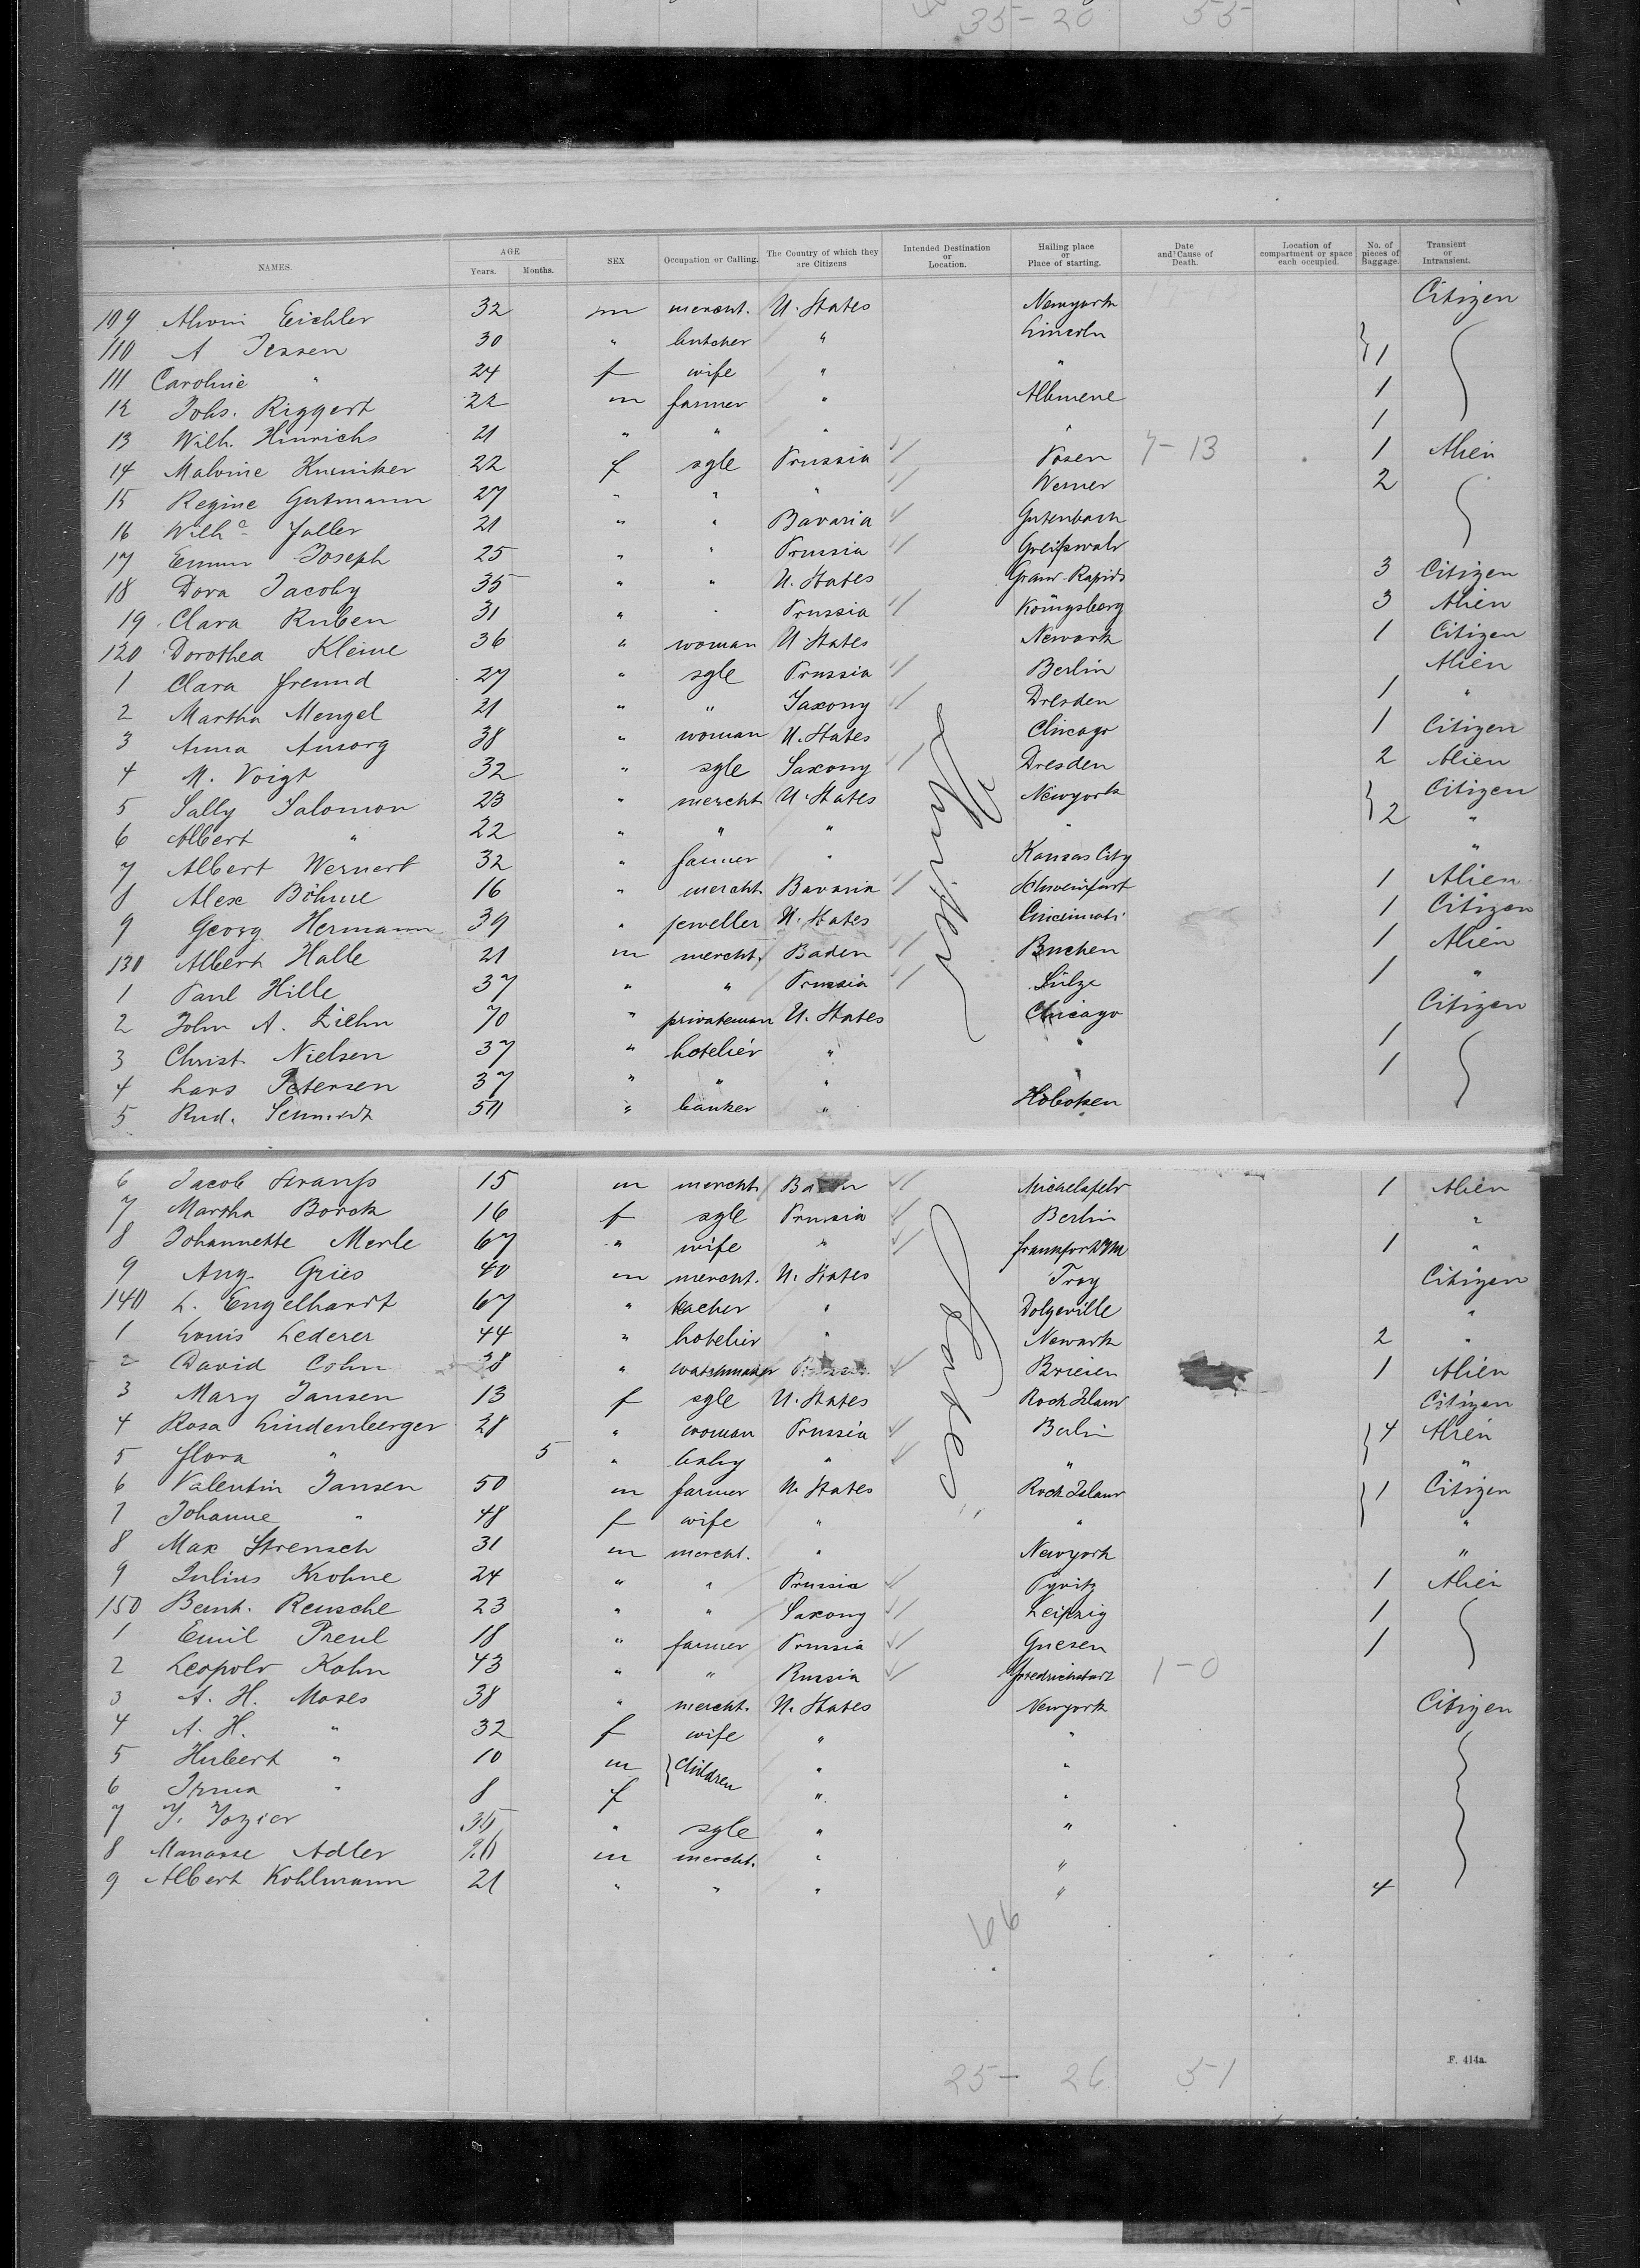 35 - 20 55
NAMES. AGE Years. Months. SEX Occupation or Calling. The Country of which they are Citizens Intended Destination or Location. Hailing place or Place of starting. Date and Cause of Death. Location of compartment or space each occupied. No. of pieces of Baggage. Transient or Intransient.
109 Alwin Eichler 32 m mercht. U. States Newyork Citizen
110 A Jessen 30 " butcher " Lincoln } 1
111 Caroline " 24 f wife " "
12 Johs. Riggert 22 m farmer " 1
13 Wilh. Hinrichs 21 " " " " 1
14 Malvine 22 f sgle Prussia Posen 7-13 1 Alien
15 Regine Gutmann 27 " " " Werner 2
16 Wilhe 21 " " Bavaria Gutenbach
17 Emma Joseph 25 " " Prussia Greifswald
18 Dora Jacoby 35 " " U. States Grand Rapids 3 Citizen
19 Clara Ruben 31 " " Prussia Königsberg 3 Alien
120 Dorothea Kleine 36 " woman U. States Newark 1 Citizen
1 Clara Freund 27 " sgle Prussia Berlin Alien
2 Martha Mengel 21 " " Saxony Dresden 1 "
3 Anna Ansorg 38 " woman U. States Chicago 1 Citizen
4 M. Voigt 32 " sgle Saxony Dresden 2 Alien
5 Sally Salomon 23 " mercht U. States Newyork } 2 Citizen
6 Albert " 22 " " " " "
7 Albert Wernert 32 " farmer " Kansas City "
8 Alex Böhme 16 " mercht Bavaria Schweinfurt 1 Alien
9 Georg Hermann 39 " jeweller U. States Cincinnati 1 Citizen
130 Albert Halle 21 m mercht. Baden Buchen 1 Alien
1 Paul Hille 37 " " Prussia Sülze 1 "
2 John A. Ziehn 70 " privateman U. States Chicago Citizen
3 Christ. Nielsen 37 " hotelier " " 1
4 Lars Petersen 37 " " " " 1
5 Rud. Schmidt " banker " Hoboken
6 Jacob Strauss 15 m mercht. Baden Michelsfeld 1 Alien
7 Martha Borck 16 f sgle Prussia Berlin "
8 Johannette Merle 67 " wife " Frankfort a/M 1 "
9 Aug. Gries 40 m mercht. U. States Troy Citizen
140 L. Engelhardt 67 " teacher " Dolgeville "
1 Louis Lederer 44 " hotelier " Newark 2 "
2 David Cohn 38 " watchmaker Briesen 1 Alien
3 Mary Jansen 13 f sgle U. States Rock Island Citizen
4 Rosa Lindenberger 28 " woman Prussia Berlin } 4 Alien
5 Flora " 5 " baby " " "
6 Valentin Jansen 50 m farmer U. States Rock Island } 1 Citizen
7 Johanne " 48 f wife " " "
8 Max Strensch 31 m mercht. " Newyork "
9 Julius Krohne 24 " " Prussia Pyritz 1 Alien
150 Bernh. Reusche 23 " " Saxony Leipzig 1
1 Emil Preul 18 " farmer Prussia Gnesen 1
2 Leopold Kahn 43 " " Russia Friedrichstadt 1-0
3 A. H. Moses 38 " mercht. U. States Newyork Citizen
4 A. H. " 32 f wife " "
5 Hubert " 10 m } Children " "
6 Irma " 8 f " "
7 35 " sgle " "
8 Manasse Adler m mercht. " "
9 Albert Kohlmann 21 " " " " 4
66
25 - 26 51
F. 414a.